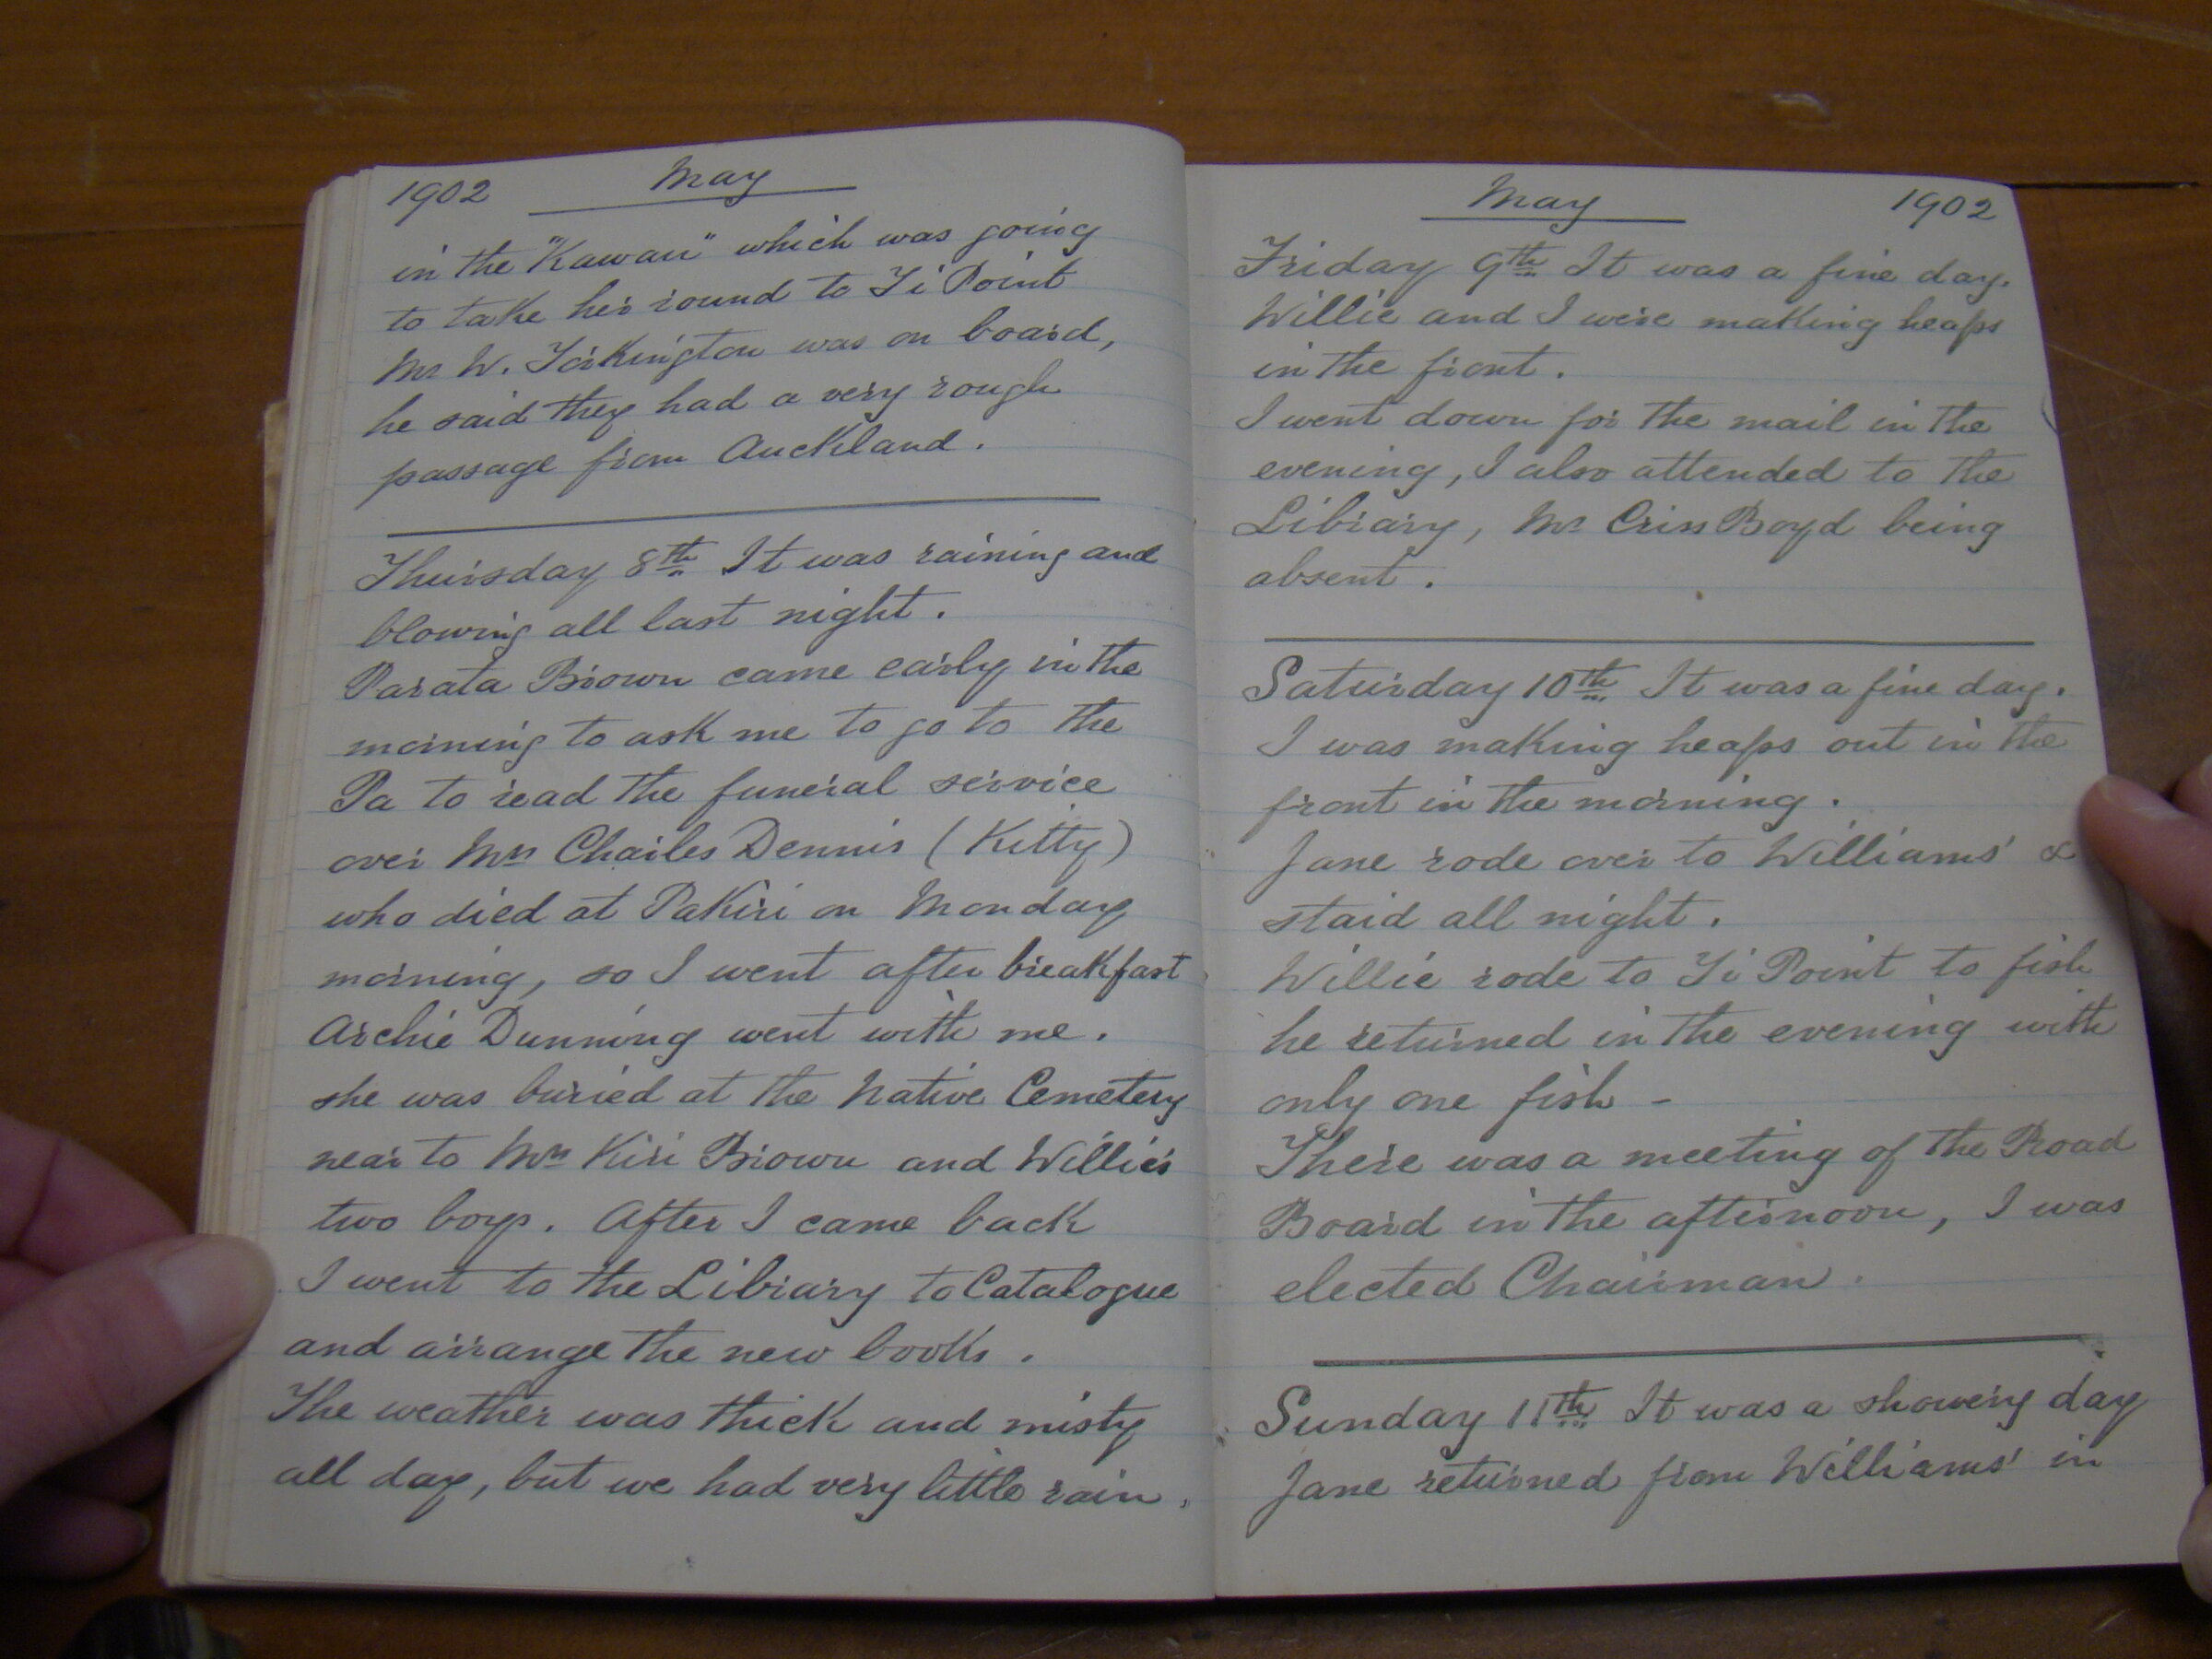 1902 May
in the "Kawau" which was going
to take her round to Ti Point
Mr W. Torkington was on board,
he said they had a very rough
passage from Auckland.
Thursday 8th It was raining and
blowing all last night.
Parata Brown came early in the
morning to ask me to go to the
Pa to read the funeral service
over Mrs Charles Dennis (Kitty)
who died at Pakiri on Monday
morning, so I went after breakfast
Archie Dunning went with me.
she was buried at the Native Cemetery
near to Mrs Kiri Brown and Willie's
two boys. After I came back
I went to the Library to Catalogue
and arrange the new books.
The weather was thick and misty
all day, but we had very little rain.
May 1902
Friday 9th It was a fine day.
Willie and I were making heaps
in the front.
I went down for the mail in the
evening, I also attended to the
Library, Mr Criss Boyd being
absent.
Saturday 10th It was a fine day.
I was making heaps out in the
front in the morning.
Jane rode over to Williams' &
staid all night.
Willie rode to Ti Point to fish
he returned in the evening with
only one fish -
There was a meeting of the Road
Board in the afternoon, I was
elected Chairman.
Sunday 11th It was a showery day
Jane returned from Williams' in